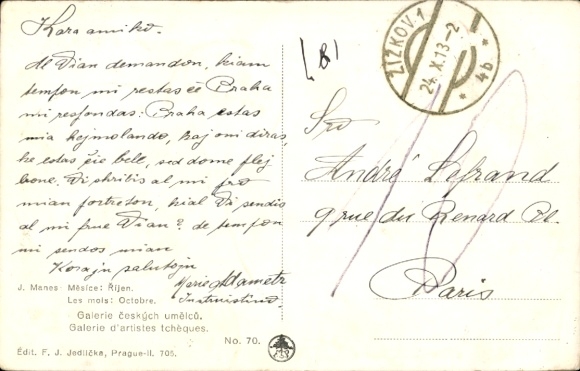 Kara amiko.
Al Vian demandon, kiam
tempon mi restas ĉe Praha
mi respondas: Praha estas
mia hejmolando, kaj oni diras,
ke estas ĉie bele, sed dome plej
bone. Vi skribis al mi pro
mian fortreton, kial Vi sendis
al mi frue Vian? de tempon
mi sendos mian
Korajn salutojn
Marie Adametz
Instruistino.
J. Manes Měsíce: Říjen.
Les mois: Octobre.
Galerie českých umělců.
Galerie d'artistes tchèques.
No. 70.
Édit. F. J. Jedlička, Prague-II. 705.
ŽIŽKOV 1
24.X.13-2
* 4b *
Sro
André Lefrand
9 rue du Renard
Paris